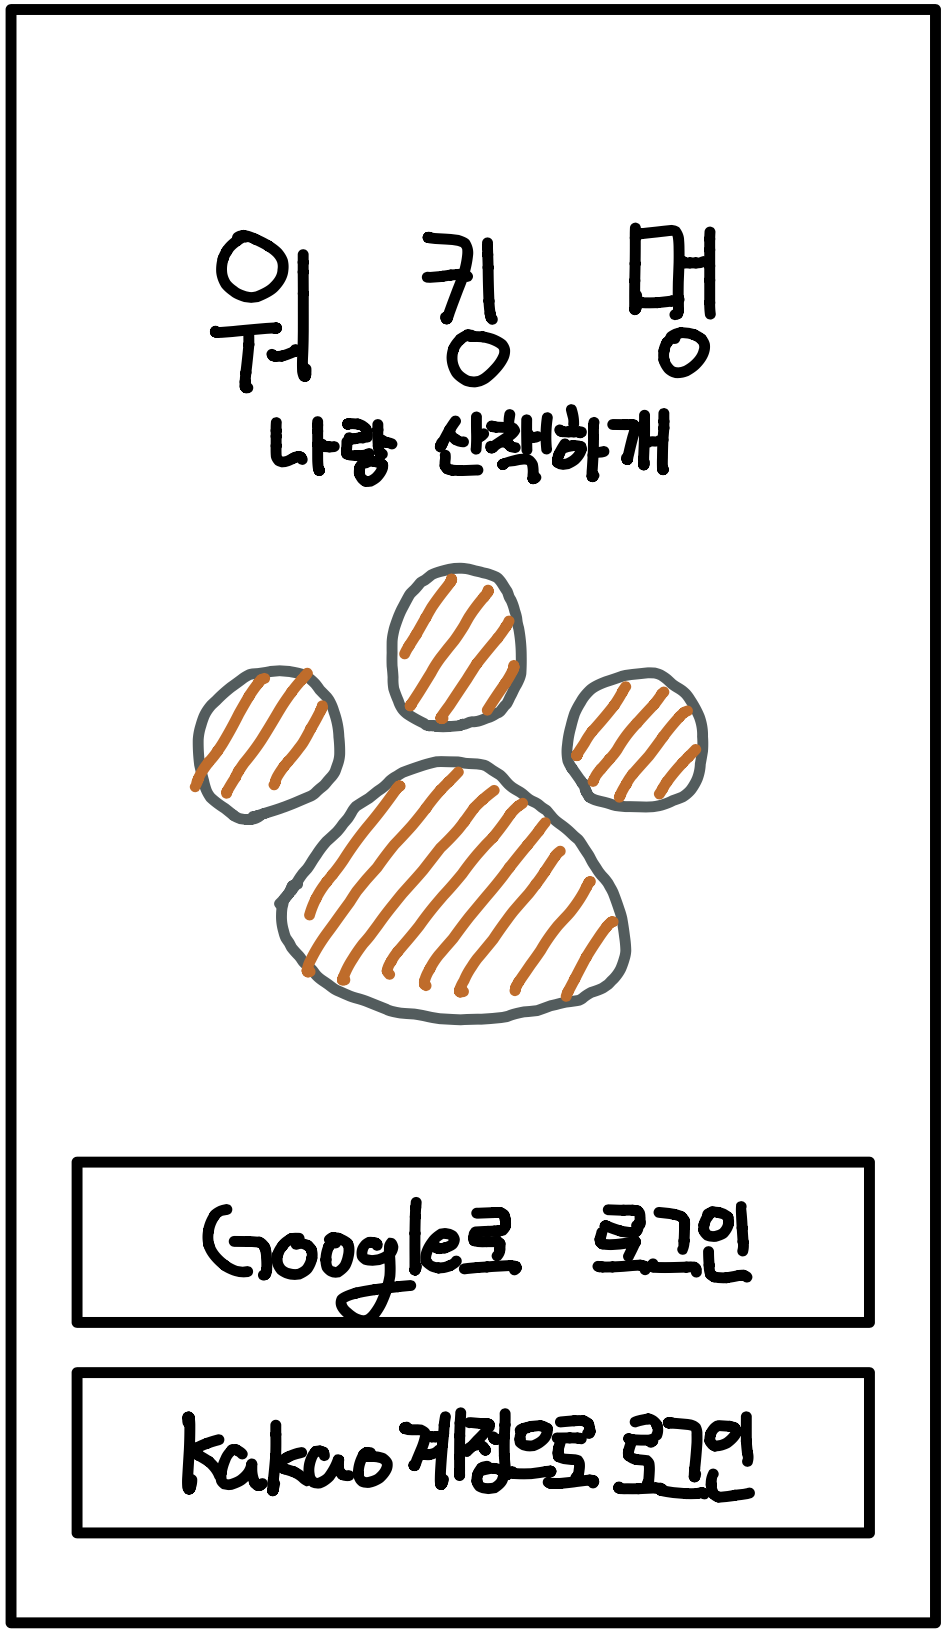 워킹멍
나랑 산책하개
Google로 로그인
Kakao계정으로 로그인